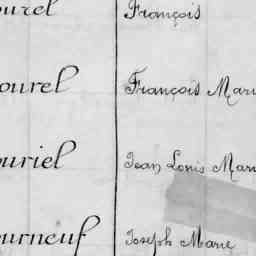 ourel François
ourel François Mari
ouriel Jean Louis Mari
ourneuf Joseph Marie